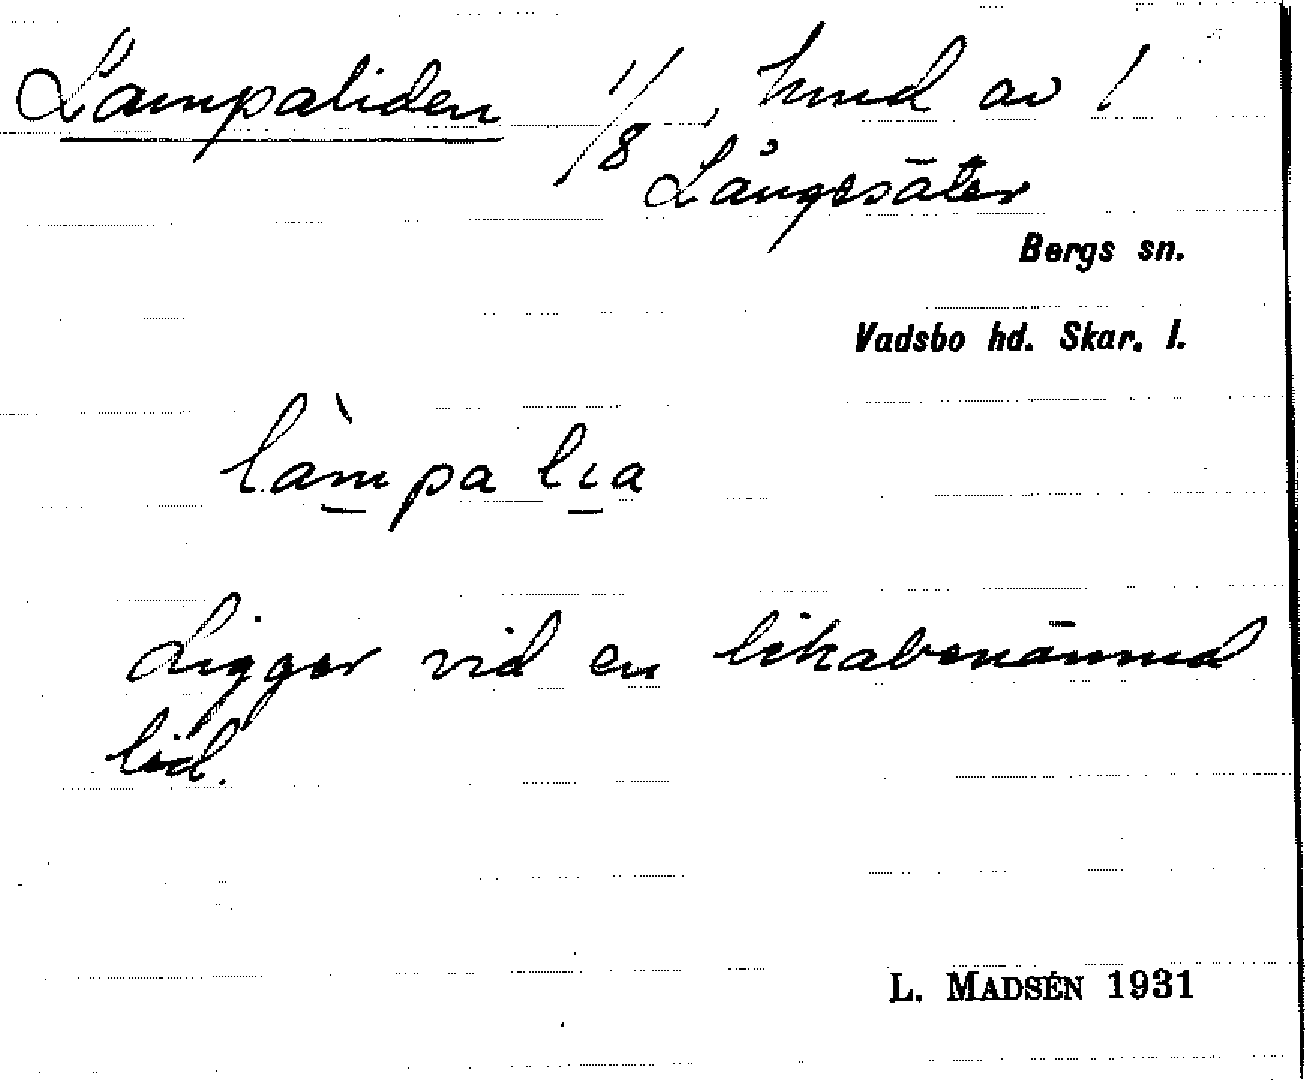 Lampaliden 1/8, hmd av 1
Långesäter
Bergs sn.
Vadsbo hd. Skar. l.
làmpa lıa
Ligger vid en likabenämnd
lid.
L. MADSÉN 1931